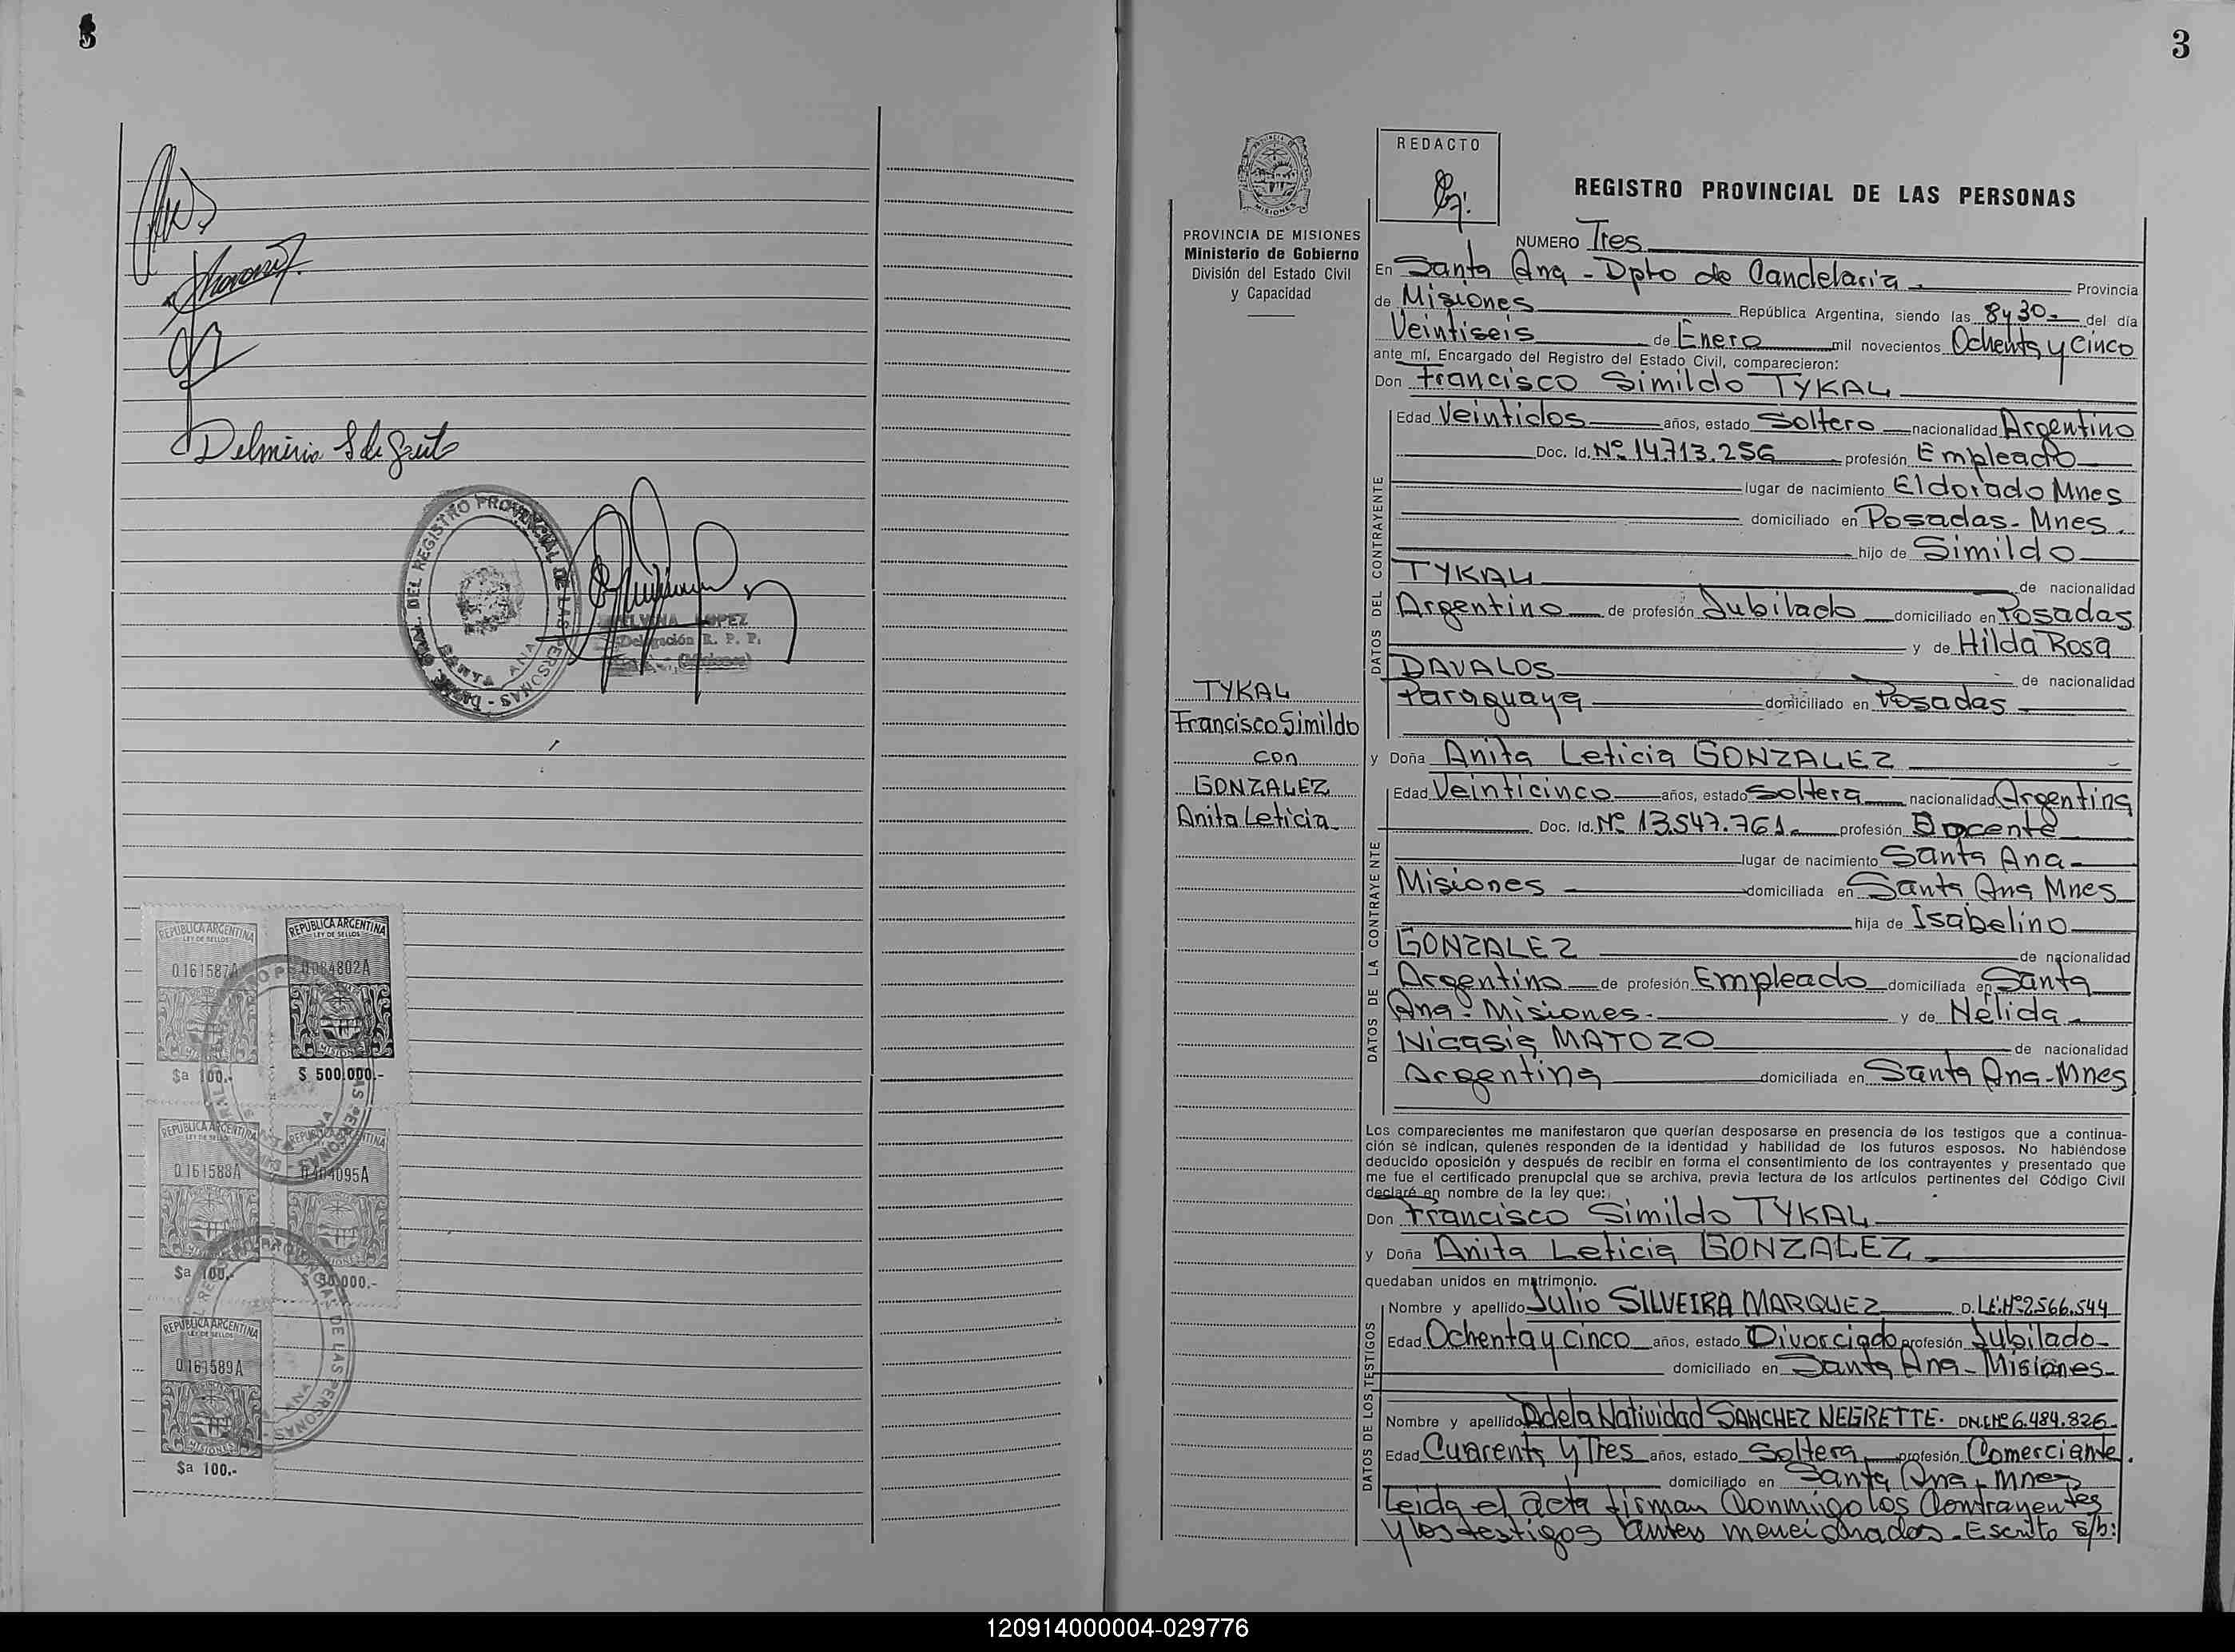 3
Delmirio S de Souto
DEL REGISTRO PROVINCIAL DE LAS PERSONAS
SANTA ANA
ELVINA LOPEZ
Delegación R. P. P.
REPUBLICA ARGENTINA
LEY DE SELLOS
0161587A
MISIONES
$a 100.-
REPUBLICA ARGENTINA
LEY DE SELLOS
0084802A
MISIONES
$ 500.000.-
REPUBLICA ARGENTINA
LEY DE SELLOS
0161588A
$a 100.-
REPUBLICA ARGENTINA
0404095A
$ 50.000.-
REPUBLICA ARGENTINA
LEY DE SELLOS
0161589A
MISIONES
$a 100.-
3
MISIONES
PROVINCIA DE MISIONES
Ministerio de Gobierno
División del Estado Civil
y Capacidad
TYKAL
Francisco Simildo
con
GONZALEZ
Anita Leticia
REDACTO
REGISTRO PROVINCIAL DE LAS PERSONAS
NUMERO Tres
En Santa Ana - Dpto de Candelaria Provincia
de Misiones República Argentina, siendo las 8y30 del día
Veintiseis de Enero mil novecientos Ochenta y Cinco
ante mí, Encargado del Registro del Estado Civil, comparecieron:
Don Francisco Simildo TYKAL
DATOS DEL CONTRAYENTE
Edad Veintidos años, estado Soltero nacionalidad Argentino
Doc. Id. Nº 14.713.256 profesión Empleado
lugar de nacimiento Eldorado Mnes
domiciliado en Posadas - Mnes.
hijo de Simildo
TYKAL de nacionalidad
Argentino de profesión Jubilado domiciliado en Posadas
y de Hilda Rosa
DAVALOS de nacionalidad
Paraguaya domiciliado en Posadas
y Doña Anita Leticia GONZALEZ
DATOS DE LA CONTRAYENTE
Edad Veinticinco años, estado Soltera nacionalidad Argentina
Doc. Id. Nº 13.547.761 profesión Docente
lugar de nacimiento Santa Ana -
Misiones domiciliada en Santa Ana Mnes
hija de Isabelino
GONZALEZ de nacionalidad
Argentino de profesión Empleado domiciliada en Santa
Ana - Misiones - y de Nélida
Nicasia MATOZO de nacionalidad
Argentina domiciliada en Santa Ana - Mnes
Los comparecientes me manifestaron que querían desposarse en presencia de los testigos que a continua-
ción se indican, quienes responden de la identidad y habilidad de los futuros esposos. No habiéndose
deducido oposición y después de recibir en forma el consentimiento de los contrayentes y presentado que
me fue el certificado prenupcial que se archiva, previa lectura de los artículos pertinentes del Código Civil
declaré en nombre de la ley que:
Don Francisco Simildo TYKAL
y Doña Anita Leticia GONZALEZ
quedaban unidos en matrimonio.
DATOS DE LOS TESTIGOS
Nombre y apellido Julio SILVEIRA MARQUEZ D. L.E. Nº 2.566.544
Edad Ochenta y cinco años, estado Divorciado profesión Jubilado -
domiciliado en Santa Ana - Misiones -
Nombre y apellido Adela Natividad SANCHEZ NEGRETTE. DN.I.Nº 6.484.826
Edad Cuarenta y Tres años, estado Soltera profesión Comerciante.
domiciliado en Santa Ana - Mnes
Leida el acta firman Conmigo los Contrayentes
y los testigos antes mencionados. Escrito s/b:
120914000004-029776